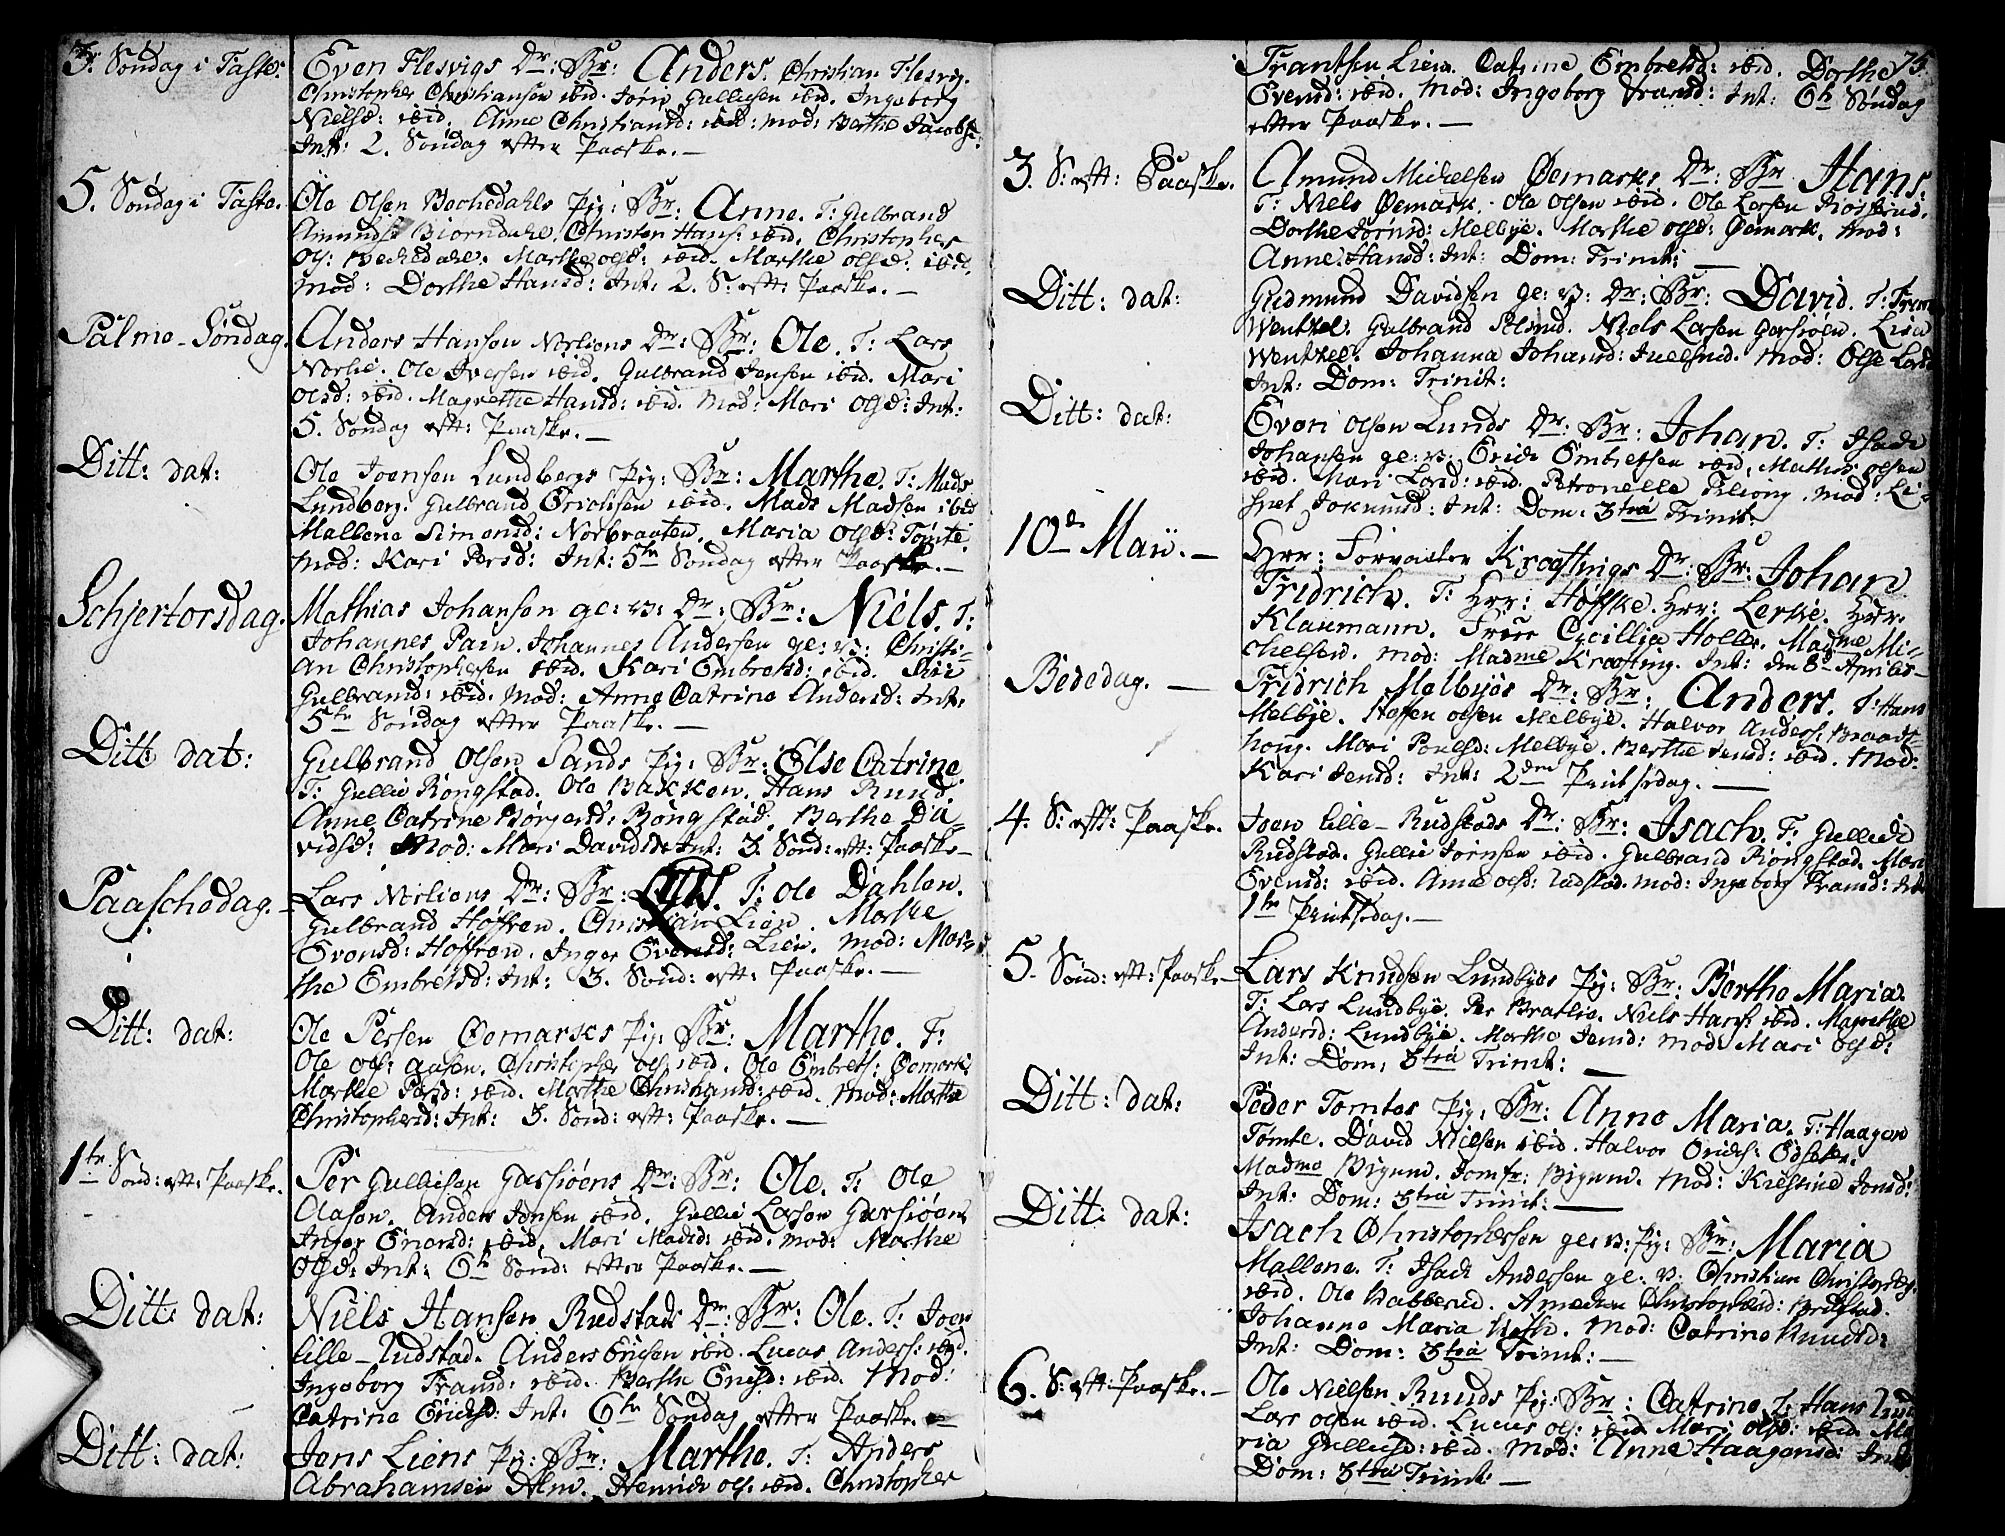 3. Søndag i Faste. Even Flesvigs Dr: Br: Anders. Christian Flesvig.
Christopher Christiansen ibid. Jørin Gullicsen ibid. Ingeborg
Nielsd: ibid. Anne Christiansd: ibid: Mod: Berthe Jacobsd:
Int: 2. Søndag efter Paaske.—
5. Søndag i Faste. Ole Olsen Bechedahls Pig: Br: Anne. F: Gulbrand
Amunds: Biørndahl. Christen Hans: ibid. Christopher
Ols: Bechedahl. Marthe olsd: ibid. Marthe olsd: ibid.
Mod: Dorthe Hansd: Int: 2. S: eft: Paaske.—
Palme-Søndag. Anders Hansen Nerliens Dr: Br: Ole. F: Lars
Nerlie. Ole Iversen ibid. Gulbrand Jensen ibid. Mari
olsd: ibid. Magrethe Hansd: ibid. Mod: Mari Olsd: Int:
5. Søndag eft: Paaske.—
Ditt: dat: Ole Joensen Lundbergs Pig: Br: Marthe. F: Mads
Lundberg. Gulbrand Erichsen ibid. Mads Madsen ibid
Mallene Simensd: Norbraaten. Maria Olsd: Tømte.
Mod: Kari Persd: Int: 5te Søndag efter Paaske.—
Schjertorsdag. Mathias Johansen ge: v: Dr: Br: Niels. F:
Johannes Pain. Johannes Andersen ge: v: Christi-
an Christophersen ibid. Kari Embretsd: ibid. Siri
Gulbransd: ibid. Mod: Anne Catrine Andersd: Int:
5te Søndag efter Paaske.—
Ditt dat: Gulbrand Olsen Sands Pig: Br: Else Catrine
F: Gullic Rongstad. Ole Bakken. Hans Rund.
Anne Catrine Børgersd: Rongstad. Berthe Da-
vidsd: Mod: Mari Davidsd: Int: 3. Sønd: eft: Paaske—
Paaschedag.— Lars Nerliens Dr: Br: F: Ole Dahlen.
Gulbrand Hoffren. Christian Lien. Marthe
Evensd: Hoffren. Inger Evensd: Lien. Mod: Mar-
the Embretsd: Int: 3. Sønd: eft: Paaske.—
Ditt: dat: Ole Persen Øemarks Pig: Br: Marthe. F:
Ole ols: Aasen. Christopher ols: ibid. Ole Embrets: Øemark.
Marthe Persd: ibid. Marthe Christiansd: ibid. Mod: Marthe
Christophersd: Int: 3. Sønd: eft: Paaske.—
1te Sønd: eft: Paaske. Per Gullicsen Gaasiøens Dr: Br: Ole. F: Ole
Aasen. Anders Jensen ibid. Gullic Larsen Gaasiøen
Inger Enersd: ibid. Mari Madsd: ibid. Mod: Marthe
Olsd: Int: 6te Sønd: efter Paaske.—
Ditt: dat: Niels Hansen Rudstads Dr: Br: Ole. F: Joen
lille-Rudstad. Anders Ericsen ibid. Lucas Anders: ibid.
Ingeborg Fransd: ibid. Berthe Ericsd: ibid. Mod:
Catrine Erichsd: Int: 6te Søndag efter Paaske.—
Ditt: dat: Jens Liens Pig: Br: Marthe. F: Anders
Abrahamsen Alm. Henrich ols: ibid. Christopher
73.
Frantsen Lien. Catrine Embretsd: ibid. Dorthe
Evensd: ibid. Mod: Ingeborg Fransd: Int: 6te Søndag
efter Paaske.—
3. S: eft: Paaske. Amund Michelsen Øemarks Dr: Br: Hans.
F: Niels Øemark. Ole Olsen ibid. Ole Larsen
Dorthe Jørnsd: Melbye. Marthe olsd: Øemark. Mod:
Anne Hansd: Int: Dom: Trinit:—
Ditt: dat: Gudmund Davidsen ge: v: Dr: Br: David. F:
Wentzel. Gulbrand Niels Larsen Gaasiøen. Lisa
Wentzel. Johanna Johansd: Juelsrud. Mod: Olse Larsd
Int: Dom: Trinit:
Ditt: dat: Even Olsen Lunds Dr: Br: Johan. F: Isach
Johansen ge: v: Erich Embretsen ibid. Mathis Olsen
ibid. Mari Larsd: ibid. Petronelle Mod: Li-
sbet Int: Dom: 3tia Trinit:
10de Maii.— Hrr: Forvalter Krafftings Dr: Br: Johan
Fridrich. F: Hrr: Hoffske. Hrr: Lerske. Hrr:
Klaumann. Frue Cecillia Holler. Madme Mi-
chelsen. Mod: Madme Kraffting. Int: den 8de Aprilis—
Bededag.— Fridrich Melbyes Dr: Br: Anders. F: Hans
Melbye. Steffen olsen Melbye. Halvor Anders: Braadt-
hong. Mari Povelsd: Melbye. Berthe Jensd: ibid. Mod:
Kari Jensd: Int: 2den Pintsedag.—
4. S: eft: Paaske. Joen lille-Rudstads Dr: Br: Isach. F: Gullich
Rudstad. Gullic Jørnsen ibid. Gulbrand Rongstad. Mari
Evensd: ibid. Anne olsd: Rudstad. Mod: Ingeborg Fransd: Int
1te Pintsedag.—
5. Sønd: eft: Paaske— Lars Knudsen Lundbyes Pig: Br: Berthe Maria.
F: Lars Lundbye. Per Bratlie. Niels Hans: ibid. Magrethe
Andersd: Lundbye. Marthe Jensd: Mod: Mari Olsd:
Int: Dom: 3tia Trinit:—
Ditt: dat: Peder Tomtes Pig: Br: Anne Maria. F: Haagen
Tømte. David Nielsen ibid. Halvor Erichs: Odseter.
Madme Bigum. Jomfr: Bigum. Mod: Kirstine Jensd:
Int: Dom: 3tia Trinit:—
Ditt: dat: Isach Christophersen ge: v: Pig: Br: Maria
Mallene. F: Isach Andersen ge: v: Christian Christophers:
ibid. Ole Habberud. Christophersd:
Johanne Maria Mod: Catrine Knudsd:
Int: Dom: 3tia Trinit:—
6. S: eft: Paaske.— Ole Nielsen Runds Pig: Br: Catrine. F: Hans Rund
Lars Olsen ibid. Lucas ols: ibid. Mari Olsd: ibid. Ma
ria Gullicsd: ibid. Mod: Anne Haagensd: Int:
Dom: 3tia Trinit:—